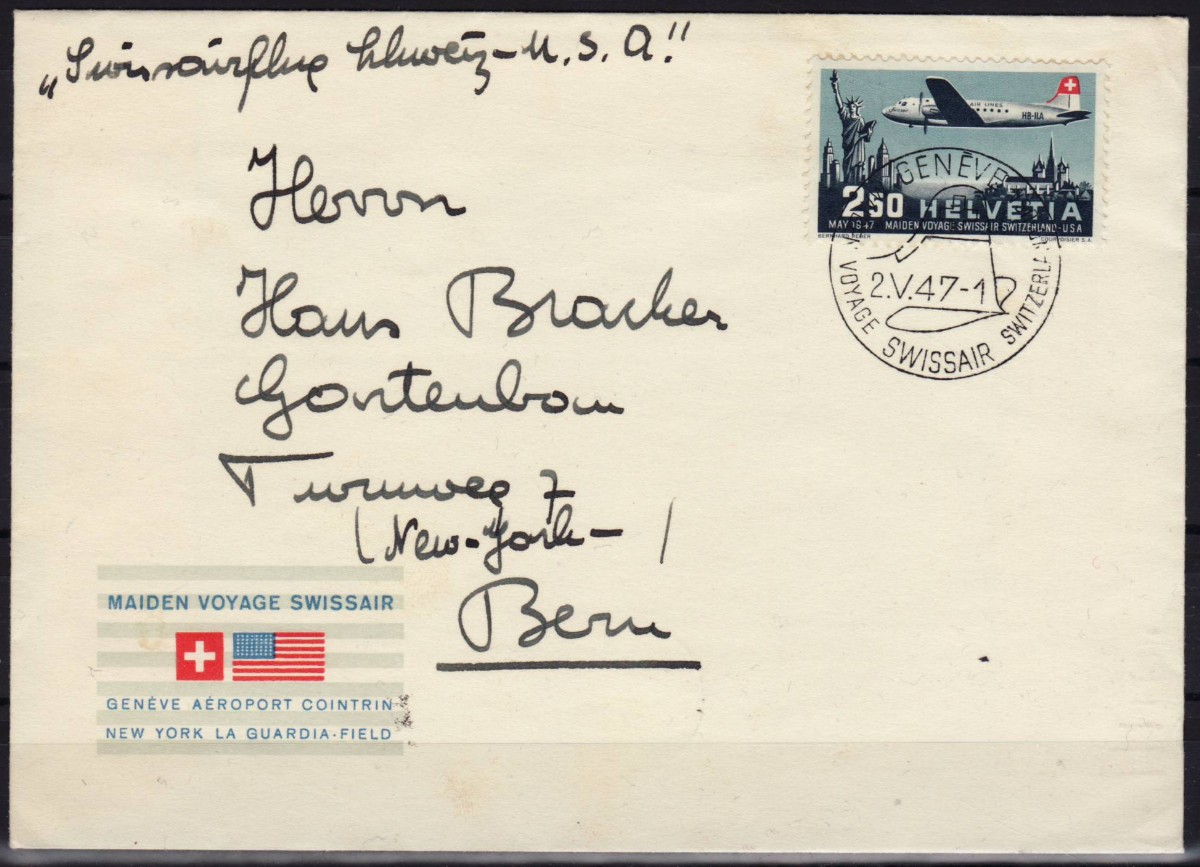 „Swissairflug Schweiz–U.S.A."
AIR LINES
HB-ILA
2.50 HELVETIA
MAY 1947 MAIDEN VOYAGE SWISSAIR SWITZERLAND-USA
COURVOISIER S.A.
GENÈVE
2.V.47-1
VOYAGE SWISSAIR SWITZERLA
Herrn
Hans Bracher
Gartenbau
Turnweg 7
(New-York-)
Bern
MAIDEN VOYAGE SWISSAIR
GENÈVE AÉROPORT COINTRIN
NEW YORK LA GUARDIA-FIELD